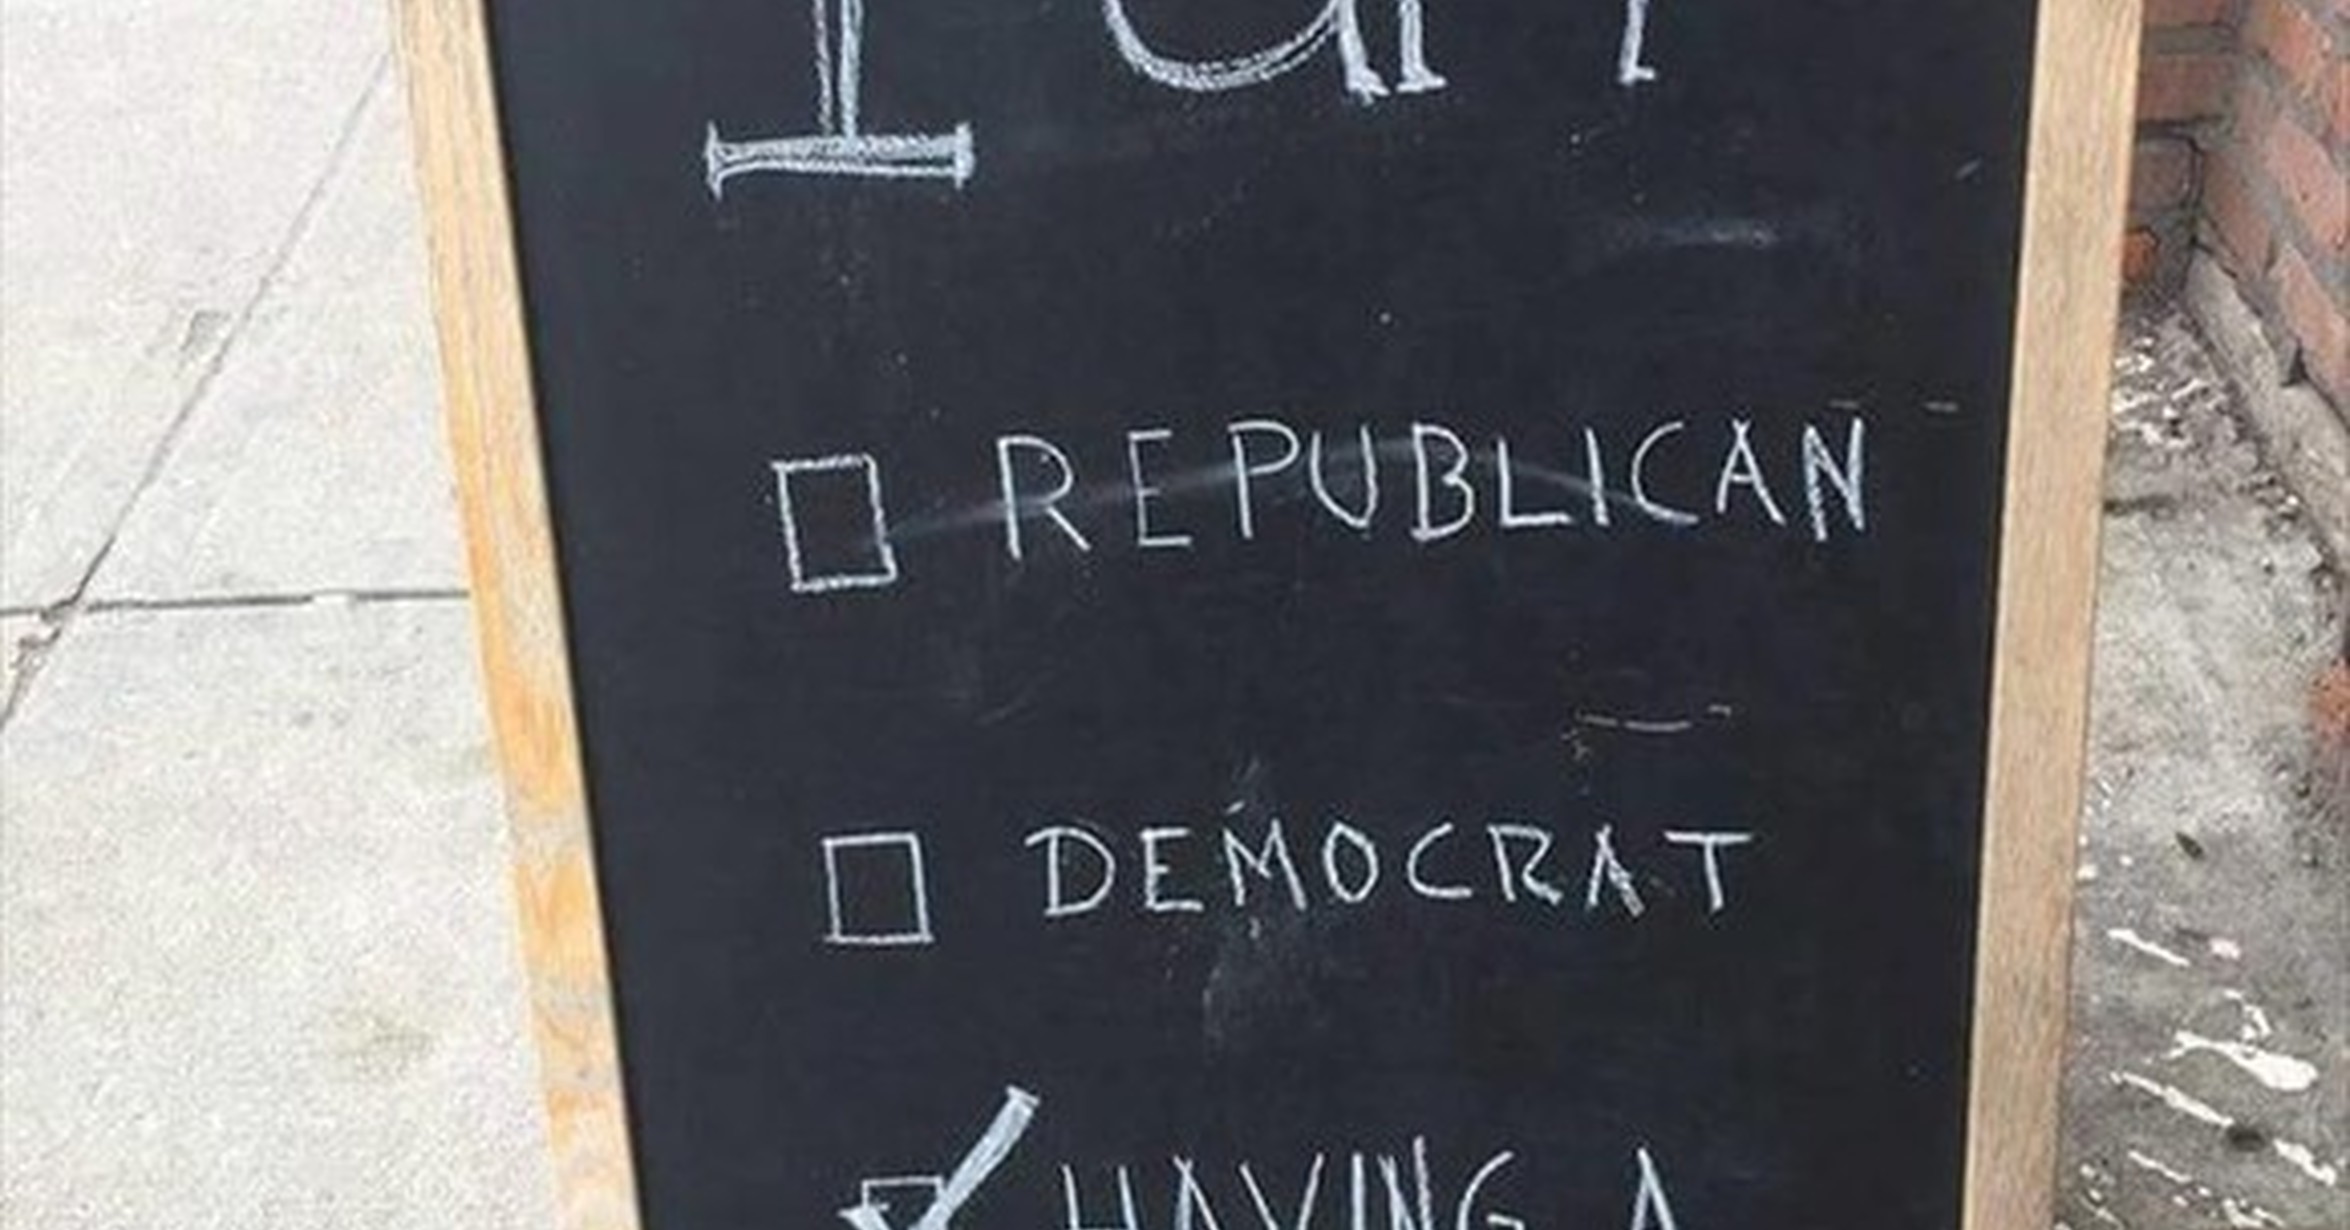 I am
REPUBLICAN
DEMOCRAT
HAVING A